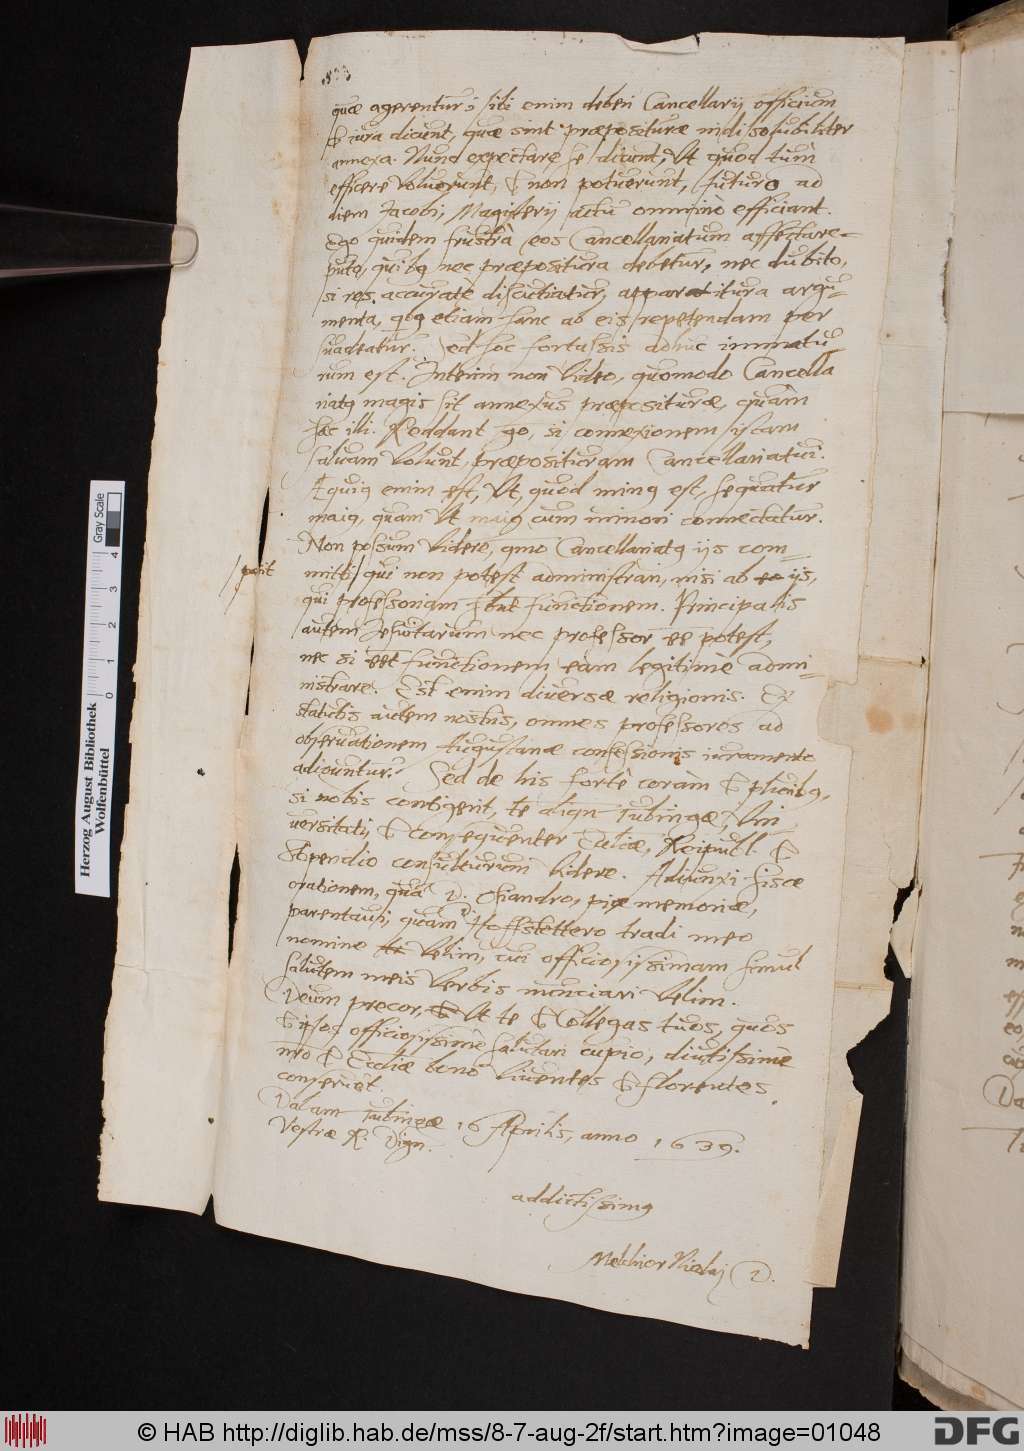 quæ agerentur; sibi enim deberi Cancellarij officium
& iura dicunt, quæ sint præpositurae indissolubiliter
annexa. Nunc expectare se dicunt, Ut quod tum
efficere voluerunt, & non potuerunt, futuro ad
diem Jacobi, Magisterij actu omnino efficiant.
Ego quidem frustrà eos Cancellariatum affectare
puto, quibq nec præpositura debetur, nec dubito,
si res accuratè discutiatur, apparitura argu-
menta, qbq etiam hanc ab eis repetendam per
suadeatur. Sed hoc fortassis adhuc immatu
rum est. Interim non video, quomodo Cancella
riatq magis sit annexus præpositurae, quàm
hæc illi. Reddant go, si connexionem istam
salvam volunt, præposituram Cancellariatui.
Æquiq enim est, Ut, quod minq est, sequatur
maiq, quam Ut maiq cum minori connectatur.
Non possum videre, qmo Cancellariatq ijs com-
mitti qui non potest administrari, nisi ab ijs,
qui professoriam hnt functionem. Principalis
autem Jesuitarum nec professor ee potest,
nec si eet functionem eam legitimè admi-
nistrare. Est enim diversæ religionis. Ex
statutis autem nostris, omnes professores ad
observationem Augustanæ confessionis iuramento
adiguntur. Sed de his fortè coràm & pluribq,
si nobis contigerit, te dign Tubingæ, Uni
versitati, & consequenter Eccliæ, Reipubl. &
Stipendio consulturum videre. Adiunxi hisce
orationem, quâ D. Osiandro, piæ memoriæ,
parentavi, quam D. Hoffstettero tradi meo
nomine velim, cui officiosissimam simul
salutem meis verbis nunciari velim.
Deum precor, Ut te & Collegas tuos, quos
& ipsos officiosissimè salutari cupio, diutissimè
nro & Eccliæ bono viventes & florentes
conservet.
Dabam Tubingæ 16 Aprilis, anno 1639.
Vestræ R. Dign.
addictissimq
Melchior Nicolaj D.
petit
Herzog August Bibliothek
Wolfenbüttel
Gray Scale
0 1 2 3 4
© HAB http://diglib.hab.de/mss/8-7-aug-2f/start.htm?image=01048
DFG